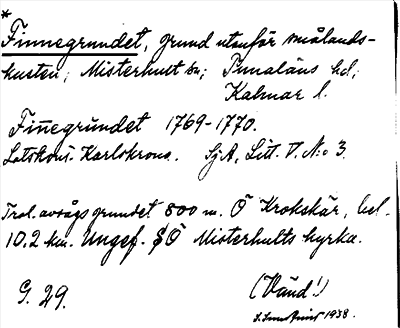 *
Finnegrundet, grund utanför smålands-
kusten; Misterhult sn; Tunaläns hd;
Kalmar l.
Fin̄egrundet 1769-1770.
Lotskont. Karlskrona. SjA, Litt. V. N:o 3.
Trol. avsågs grundet 800 m. Ö Krokskär, bel.
10.2 km. Ungef. SÖ Misterhults kyrka.
G. 29.
(Vänd!)
1938.